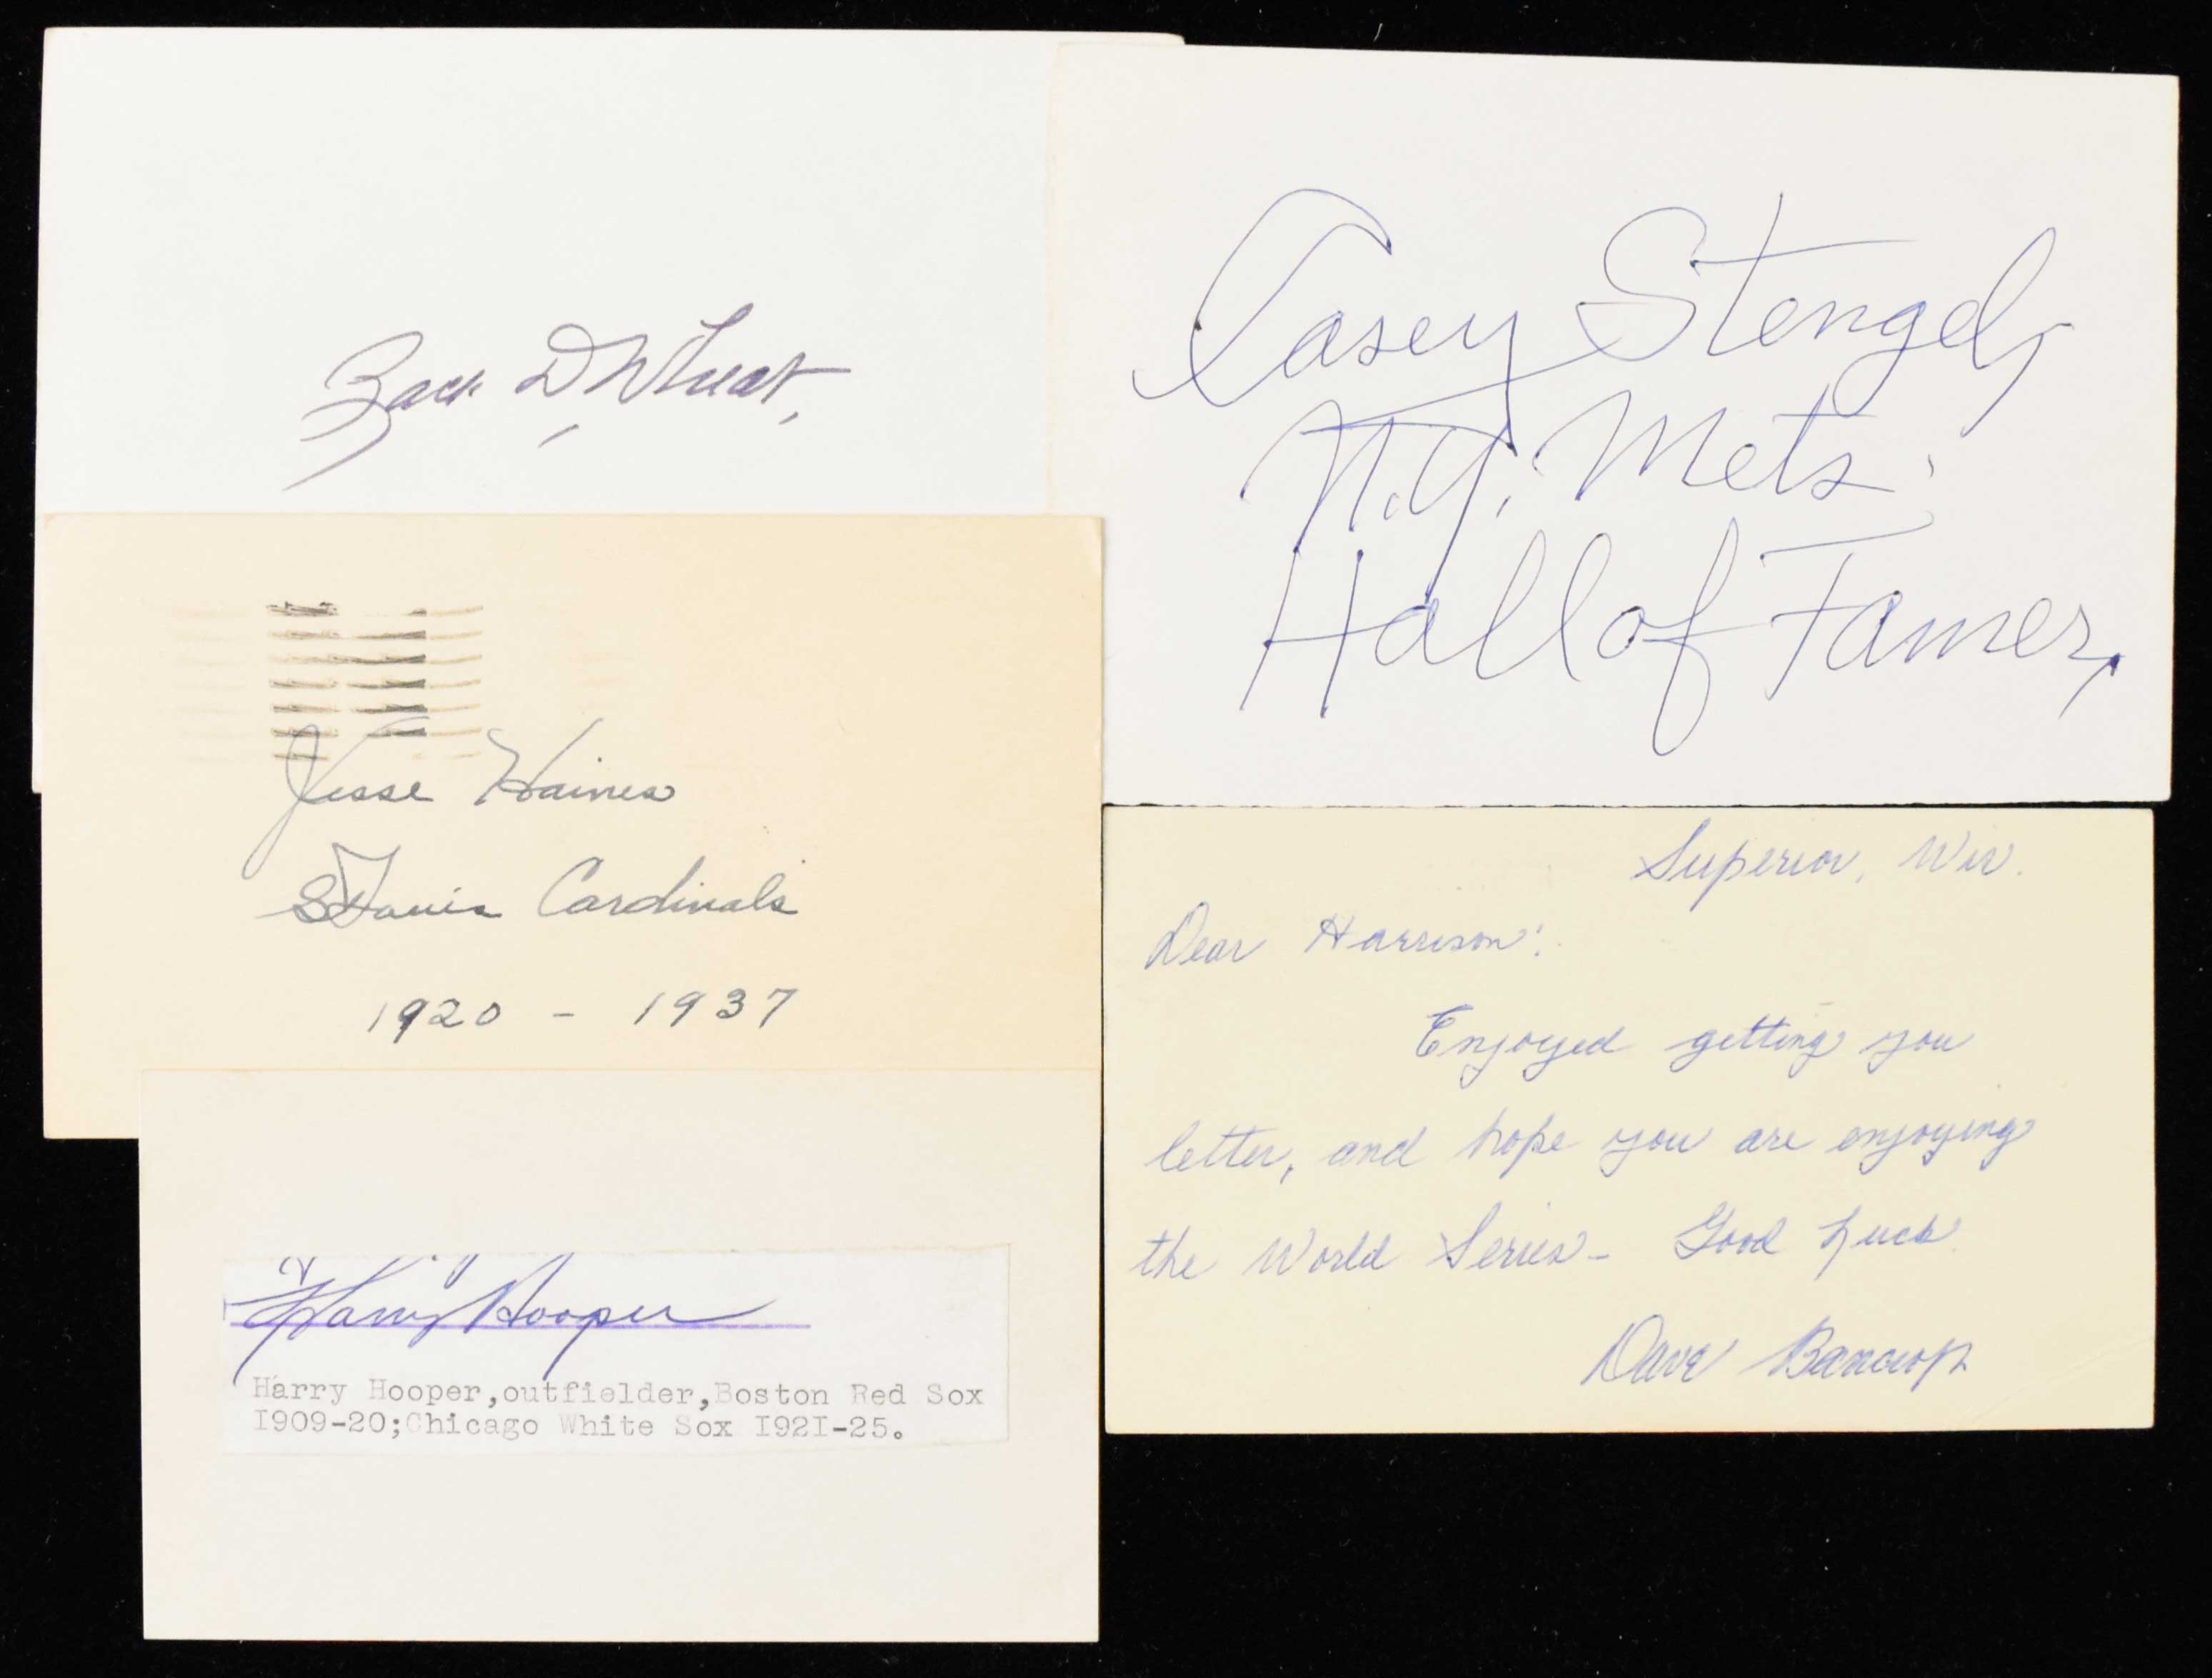 Zack D Wheat,
Casey Stengel,
N.Y. Mets.
Hall of Famer,
Jesse Haines
St Louis Cardinals
1920 - 1937
Harry Hooper
Harry Hooper,outfielder,Boston Red Sox
I909-20;Chicago White Sox I92I-25.
Superior, Wis.
Dear Harrison:
Enjoyed getting you
letter, and hope you are enjoying
the World Series- Good Luck
Dave Bancroft